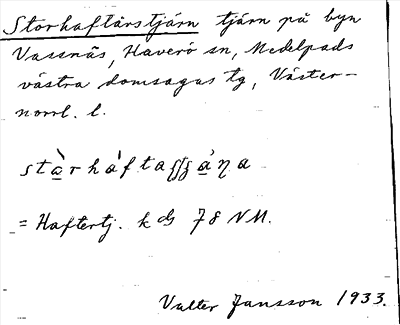 Storhaftårstjärn tjärn på byn
Vassnäs, Haverö sn, Medelpads
västra domsagas tg, Väster-
norrl. l.
= Haftertj. k dg 78 NV.
Valter Jansson 1933.